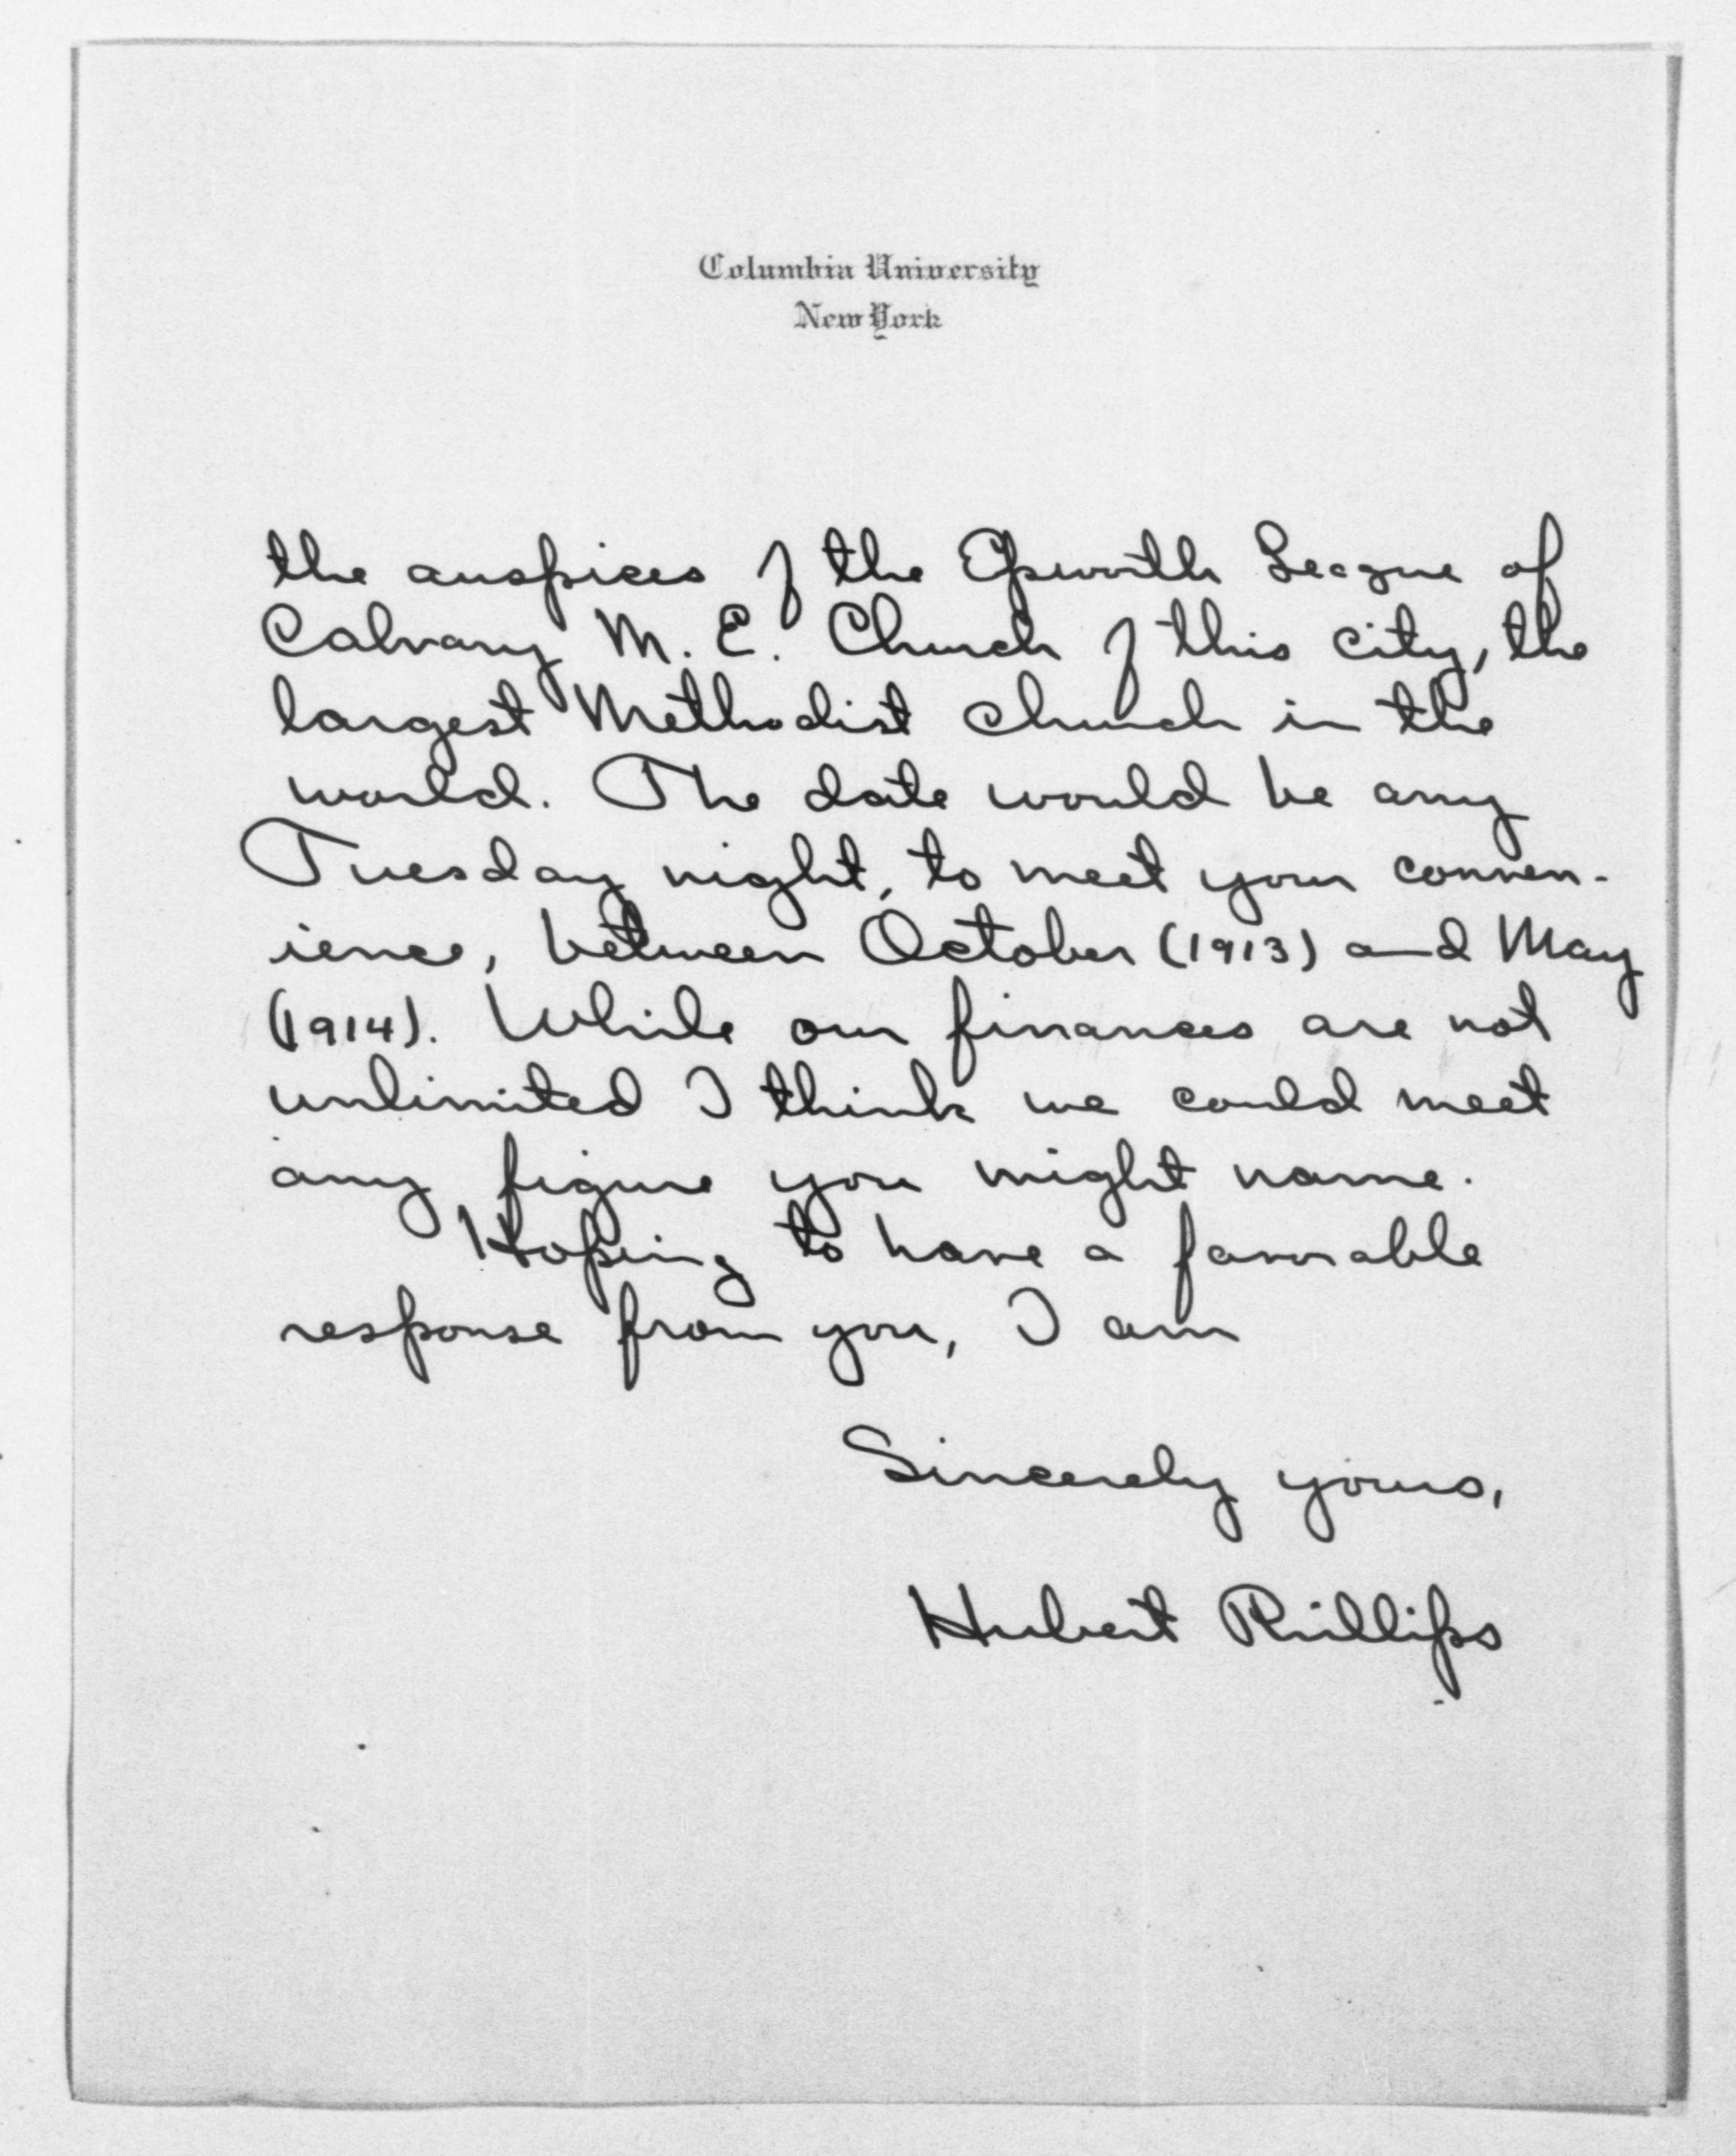 Columbia University
New York
the auspices of the Epworth League of
Calvary M. E. Church of this city, the
largest Methodist church in the
world. The date would be any
Tuesday night, to meet your conven-
ience, between October (1913) and May
(1914). While our finances are not
unlimited I think we could meet
any figure you might name.
Hoping to have a favorable
response from you, I am
Sincerely yours,
Hubert Phillips